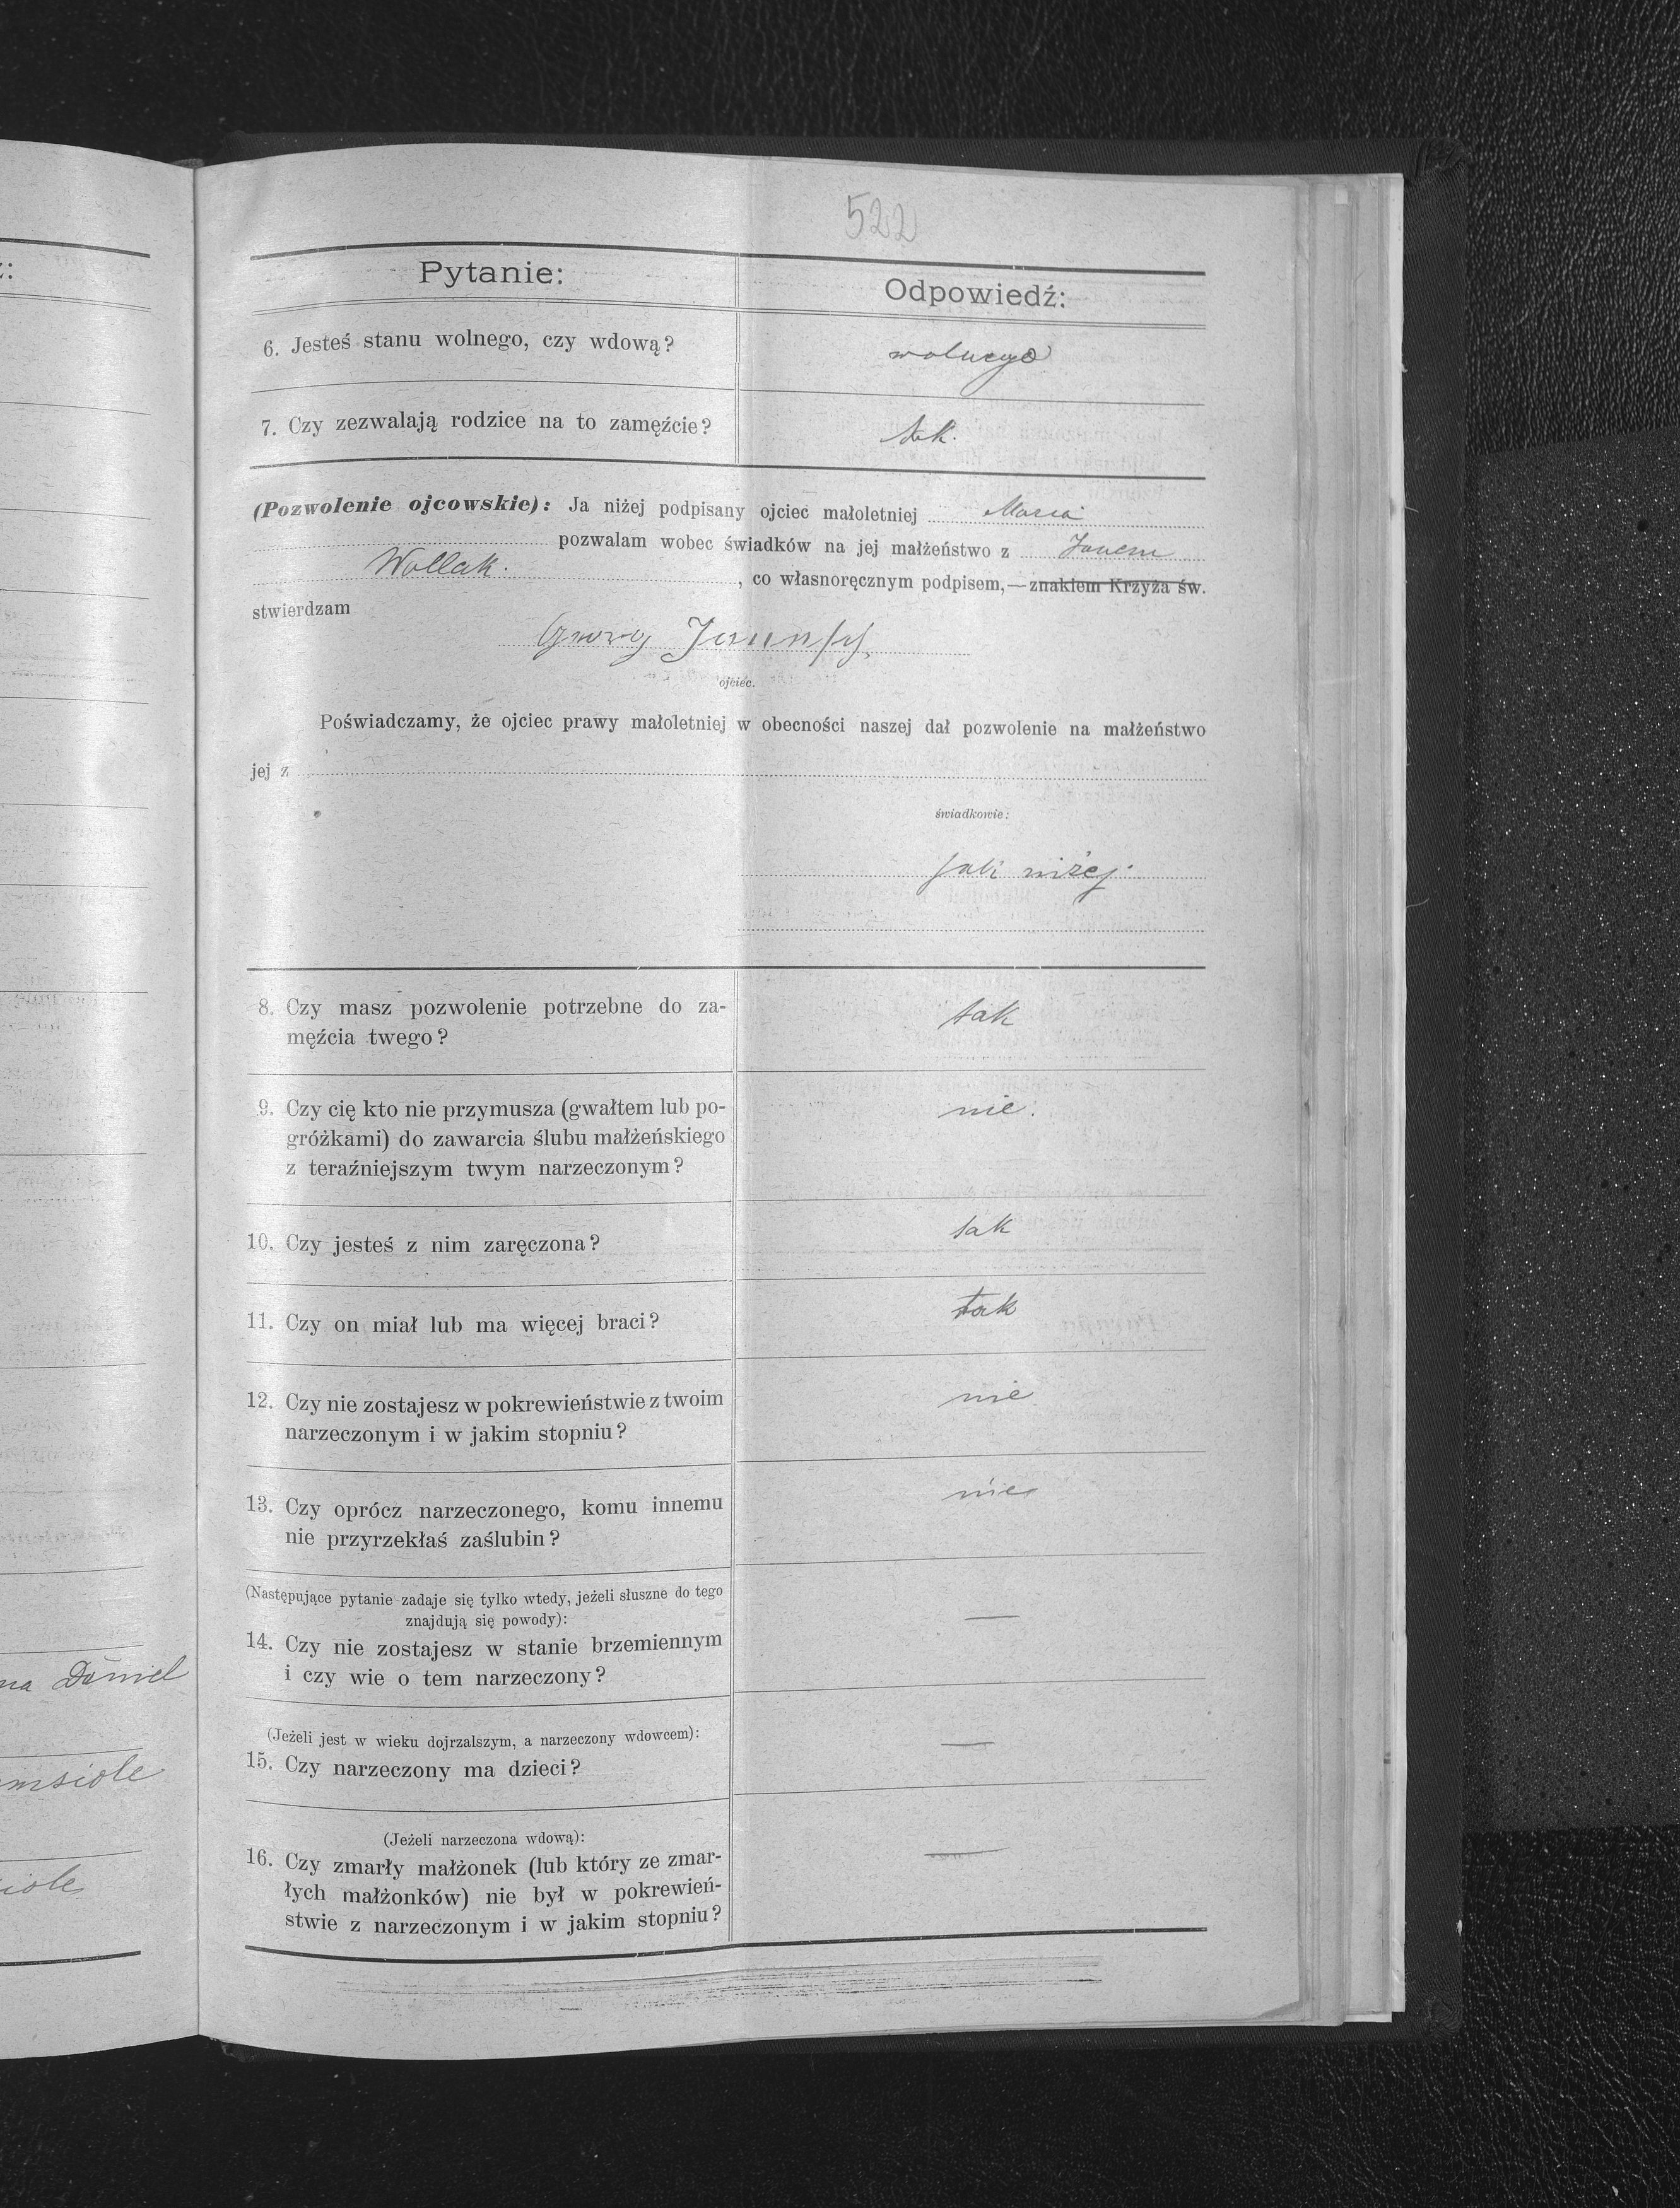 522
Pytanie:
Odpowiedź:
6. Jesteś stanu wolnego, czy wdową?
wolnego
7. Czy zezwalają rodzice na to zamęźcie?
tak.
(Pozwolenie ojcowskie): Ja niżej podpisany ojciec małoletniej Maria
pozwalam wobec świadków na jej małżeństwo z Janem
Wollak. , co własnoręcznym podpisem,—znakiem Krzyża św.
stwierdzam
Georg
ojciec.
Poświadczamy, że ojciec prawy małoletniej w obecności naszej dał pozwolenie na małżeństwo
jej z
świadkowie:
jak niżej.
8. Czy masz pozwolenie potrzebne do za-
męźcia twego?
tak
9. Czy cię kto nie przymusza (gwałtem lub po-
gróżkami) do zawarcia ślubu małżeńskiego
z teraźniejszym twym narzeczonym?
nie.
10. Czy jesteś z nim zaręczona?
tak
11. Czy on miał lub ma więcej braci?
tak
12. Czy nie zostajesz w pokrewieństwie z twoim
narzeczonym i w jakim stopniu?
nie
13. Czy oprócz narzeczonego, komu innemu
nie przyrzekłaś zaślubin?
nie
(Następujące pytanie zadaje się tylko wtedy, jeżeli słuszne do tego
znajdują się powody):
14. Czy nie zostajesz w stanie brzemiennym
i czy wie o tem narzeczony?
—
(Jeżeli jest w wieku dojrzalszym, a narzeczony wdowcem):
15. Czy narzeczony ma dzieci?
—
(Jeżeli narzeczona wdową):
16. Czy zmarły małżonek (lub który ze zmar-
łych małżonków) nie był w pokrewień-
stwie z narzeczonym i w jakim stopniu?
—